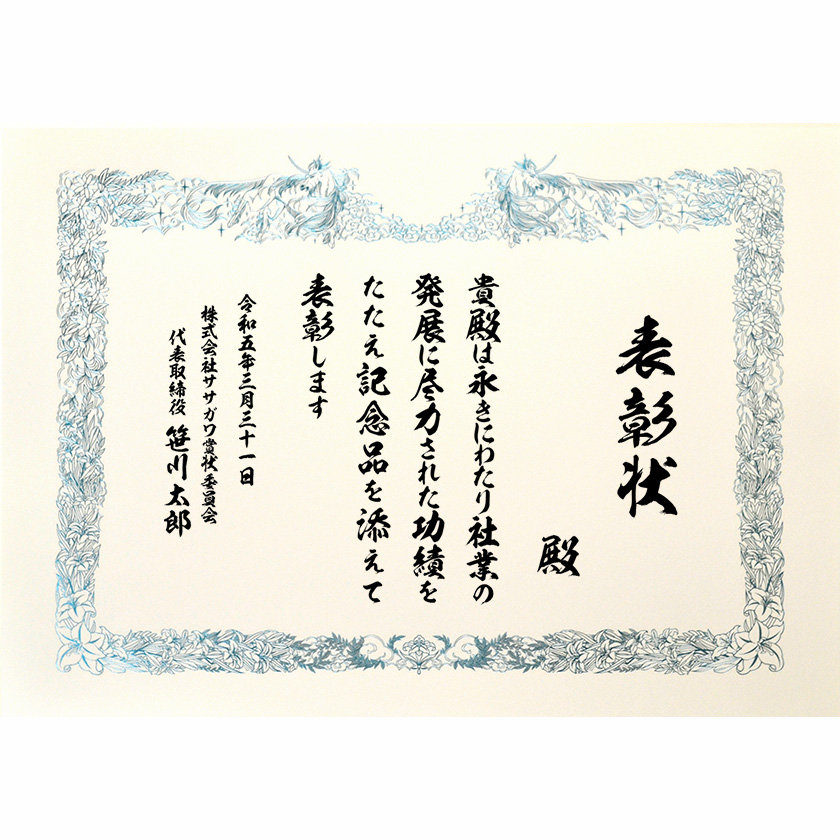 表彰状
殿
貴殿は永きにわたり社業の
発展に尽力された功績を
たたえ記念品を添えて
表彰します
令和五年三月三十一日
株式会社ササガワ賞状委員会
代表取締役 笹川太郎